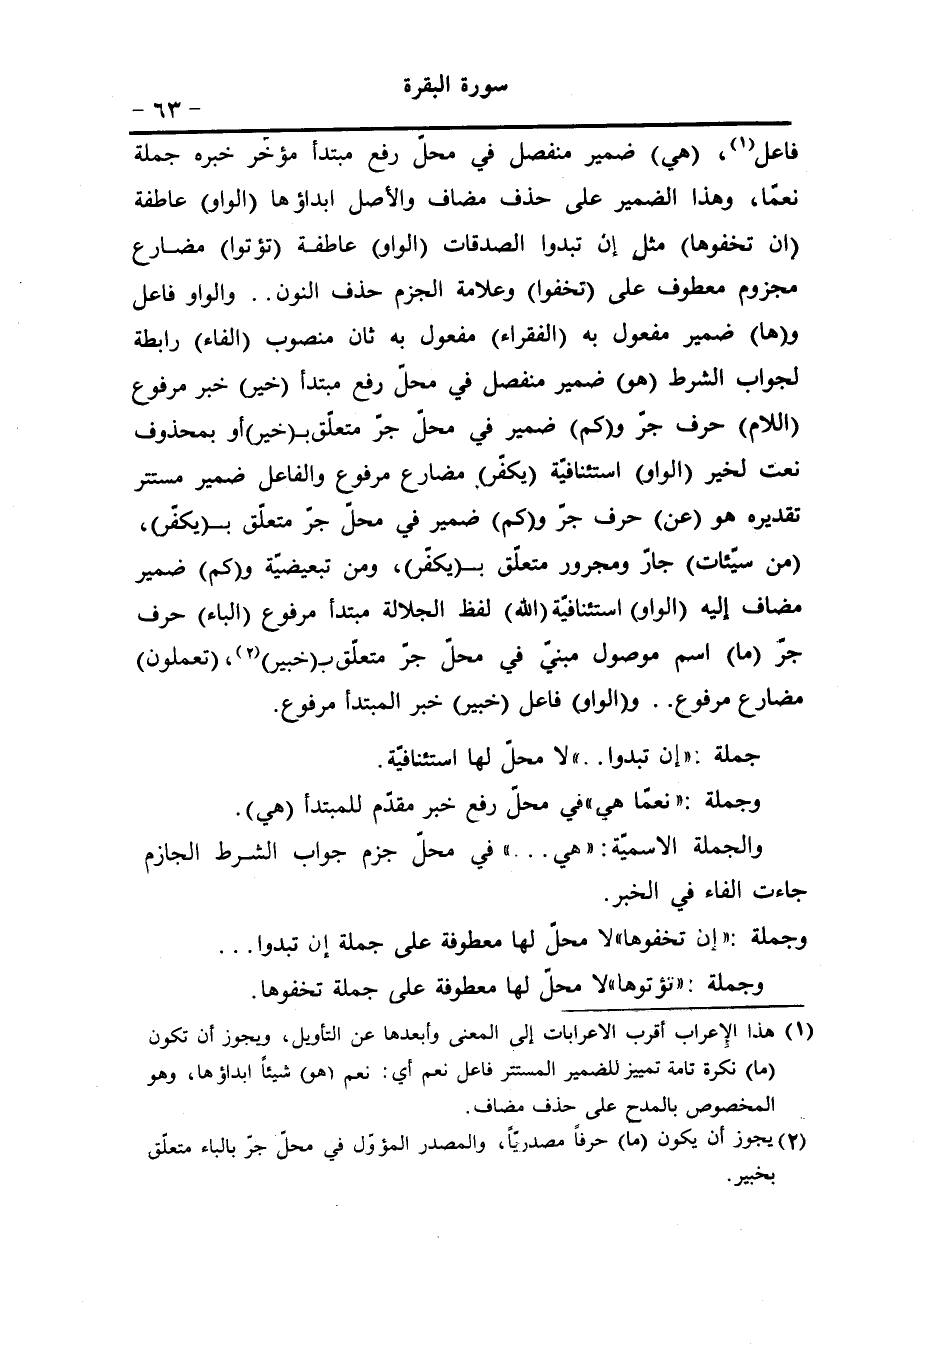 سورة البقرة
- ٦٣ -
فاعل(١)، (هي) ضمير منفصل في محلّ رفع مبتدأ مؤخّر خبره جملة
نعمّا، وهذا الضمير على حذف مضاف والأصل ابداؤها (الواو) عاطفة
(ان تخفوها) مثل إن تبدوا الصدقات (الواو) عاطفة (تؤتوا) مضارع
مجزوم معطوف على (تخفوا) وعلامة الجزم حذف النون.. والواو فاعل
و(ها) ضمير مفعول به (الفقراء) مفعول به ثان منصوب (الفاء) رابطة
لجواب الشرط (هو) ضمير منفصل في محلّ رفع مبتدأ (خير) خبر مرفوع
(اللام) حرف جرّ و(كم) ضمير في محلّ جرّ متعلّق بـ(خير) أو بمحذوف
نعت لخير (الواو) استئنافيّة (يكفّر) مضارع مرفوع والفاعل ضمير مستتر
تقديره هو (عن) حرف جرّ و(كم) ضمير في محلّ جرّ متعلّق بـ(يكفّر)،
(من سيّئات) جارّ ومجرور متعلّق بـ(يكفّر)، ومن تبعيضيّة و(كم) ضمير
مضاف إليه (الواو) استئنافيّة (الله) لفظ الجلالة مبتدأ مرفوع (الباء) حرف
جرّ (ما) اسم موصول مبنيّ في محلّ جرّ متعلّق بـ(خبير)(٢)، (تعملون)
مضارع مرفوع.. و(الواو) فاعل (خبير) خبر المبتدأ مرفوع.
جملة :«إن تبدوا..» لا محلّ لها استئنافيّة.
وجملة :«نعمّا هي» في محلّ رفع خبر مقدّم للمبتدأ (هي).
والجملة الاسميّة: «هي...» في محلّ جزم جواب الشرط الجازم
جاءت الفاء في الخبر.
وجملة :«إن تخفوها» لا محلّ لها معطوفة على جملة إن تبدوا...
وجملة :«تؤتوها» لا محلّ لها معطوفة على جملة تخفوها.
(١) هذا الإعراب أقرب الاعرابات إلى المعنى وأبعدها عن التأويل، ويجوز أن تكون
(ما) نكرة تامة تمييز للضمير المستتر فاعل نعم أي: نعم (هو) شيئاً ابداؤها، وهو
المخصوص بالمدح على حذف مضاف.
(٢) يجوز أن يكون (ما) حرفاً مصدريّاً، والمصدر المؤوّل في محلّ جرّ بالباء متعلّق
بخبير.